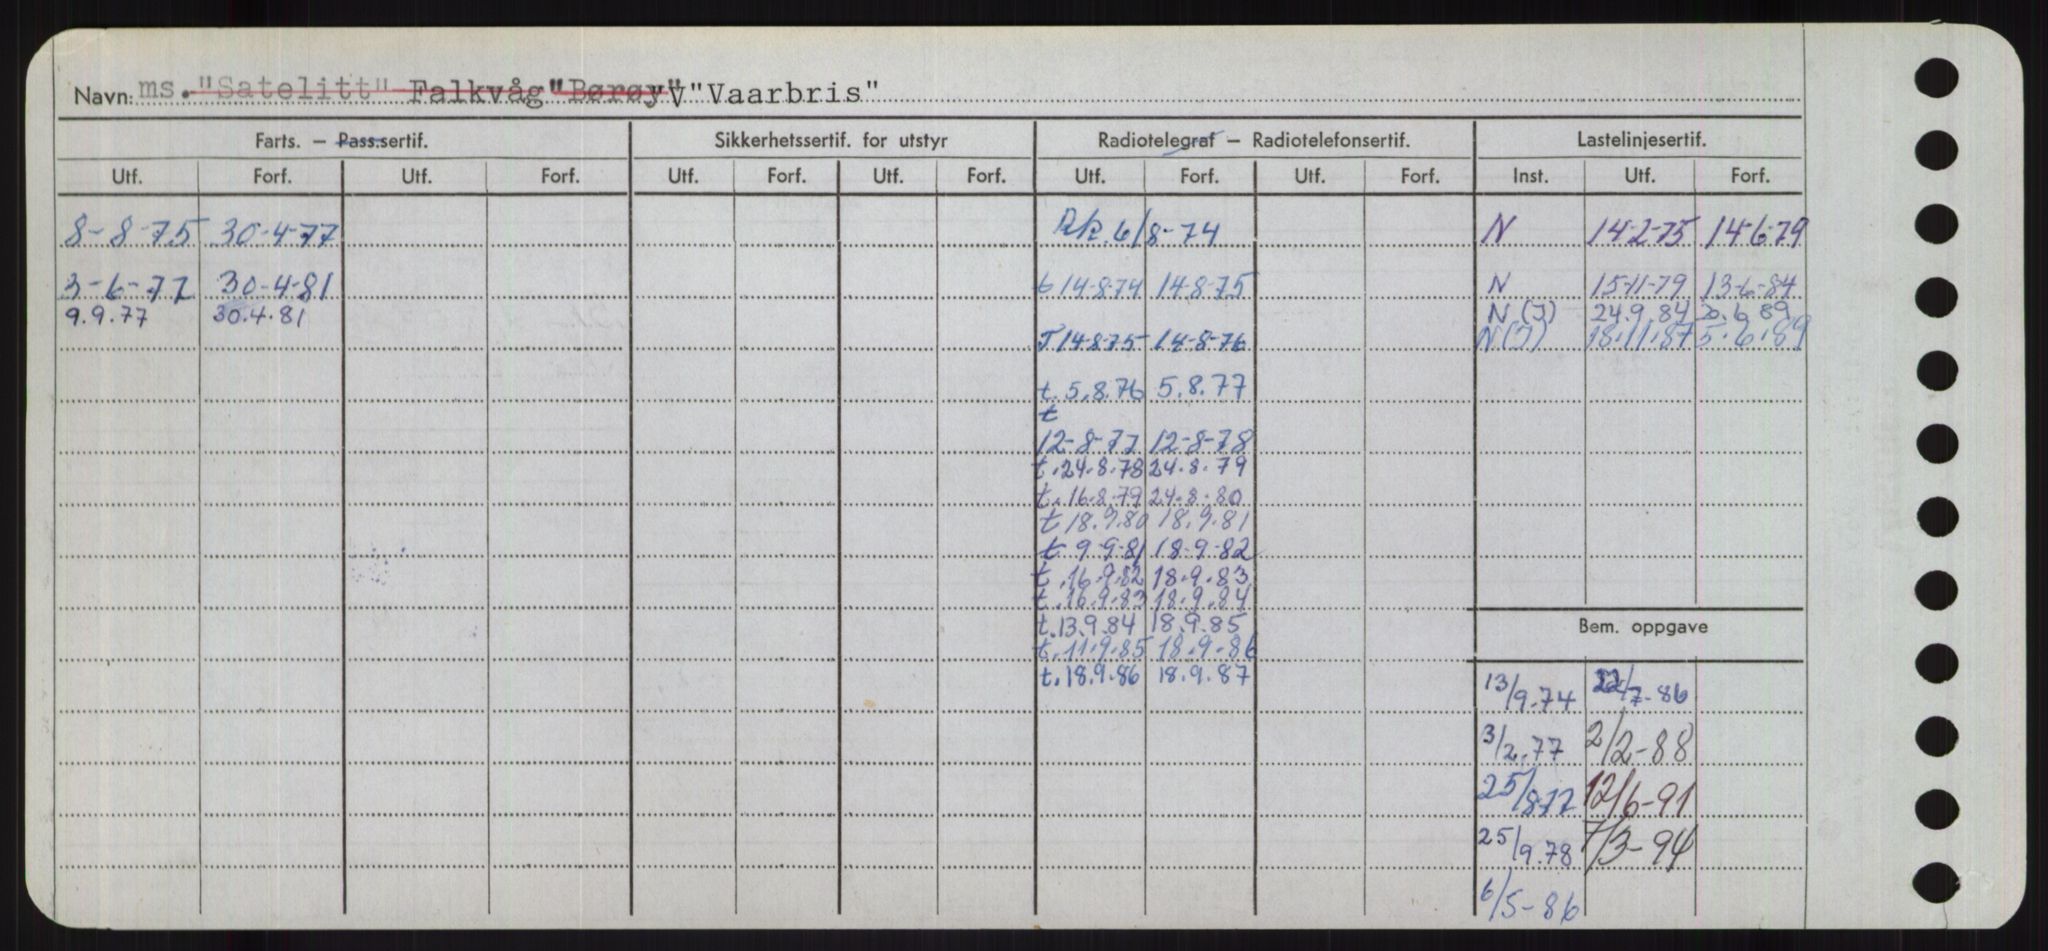 Navn: ms. "Satelitt" Falkvåg "Børøy" "Vaarbris"
Farts. — Pass.sertif. Sikkerhetssertif. for utstyr Radiotelegraf — Radiotelefonsertif. Lastelinjesertif.
Utf. Forf. Utf. Forf. Utf. Forf. Utf. Forf. Utf. Forf. Utf. Forf. Inst. Utf. Forf.
8-8-75 30-4-77 6/8-74 N 14-2-75 14-6-79
3-6-77 30-4-81 t 14-8-74 14-8-75 N 15-11-79 13-6-84
9.9.77 30.4.81 N (I) 24.9.84 30.6.89
T 14-8-75 14-8-76 N (I) 18.11.87 5.6.89
t. 5.8.76 5.8.77
t
12-8-77 12-8-78
t. 24.8.78 24.8.79
t. 16.8.79 24.8.80
t 18.9.80 18.9.81
t 9-9-81 18-9-82
t. 16.9.82 18.9.83
t. 16.9.83 18.9.84
t. 13.9.84 18.9.85
Bem. oppgave
t. 11.9.85 18.9.86
t. 18.9.86 18.9.87
13/9.74 22/7-86
3/2.77 2/2-88
25/8-77 12/6-91
25/9.78 7/3-94
6/5-86